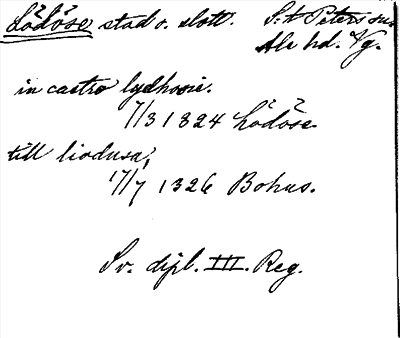 Lödöse stad o. slott. S:t Peters sn
Ale hd. Vg.
in castro lydhosie.
7/3 1324 Lödöse
till liodusa,
17/7 1326 Bohus.
Sv. dipl. III. Reg.